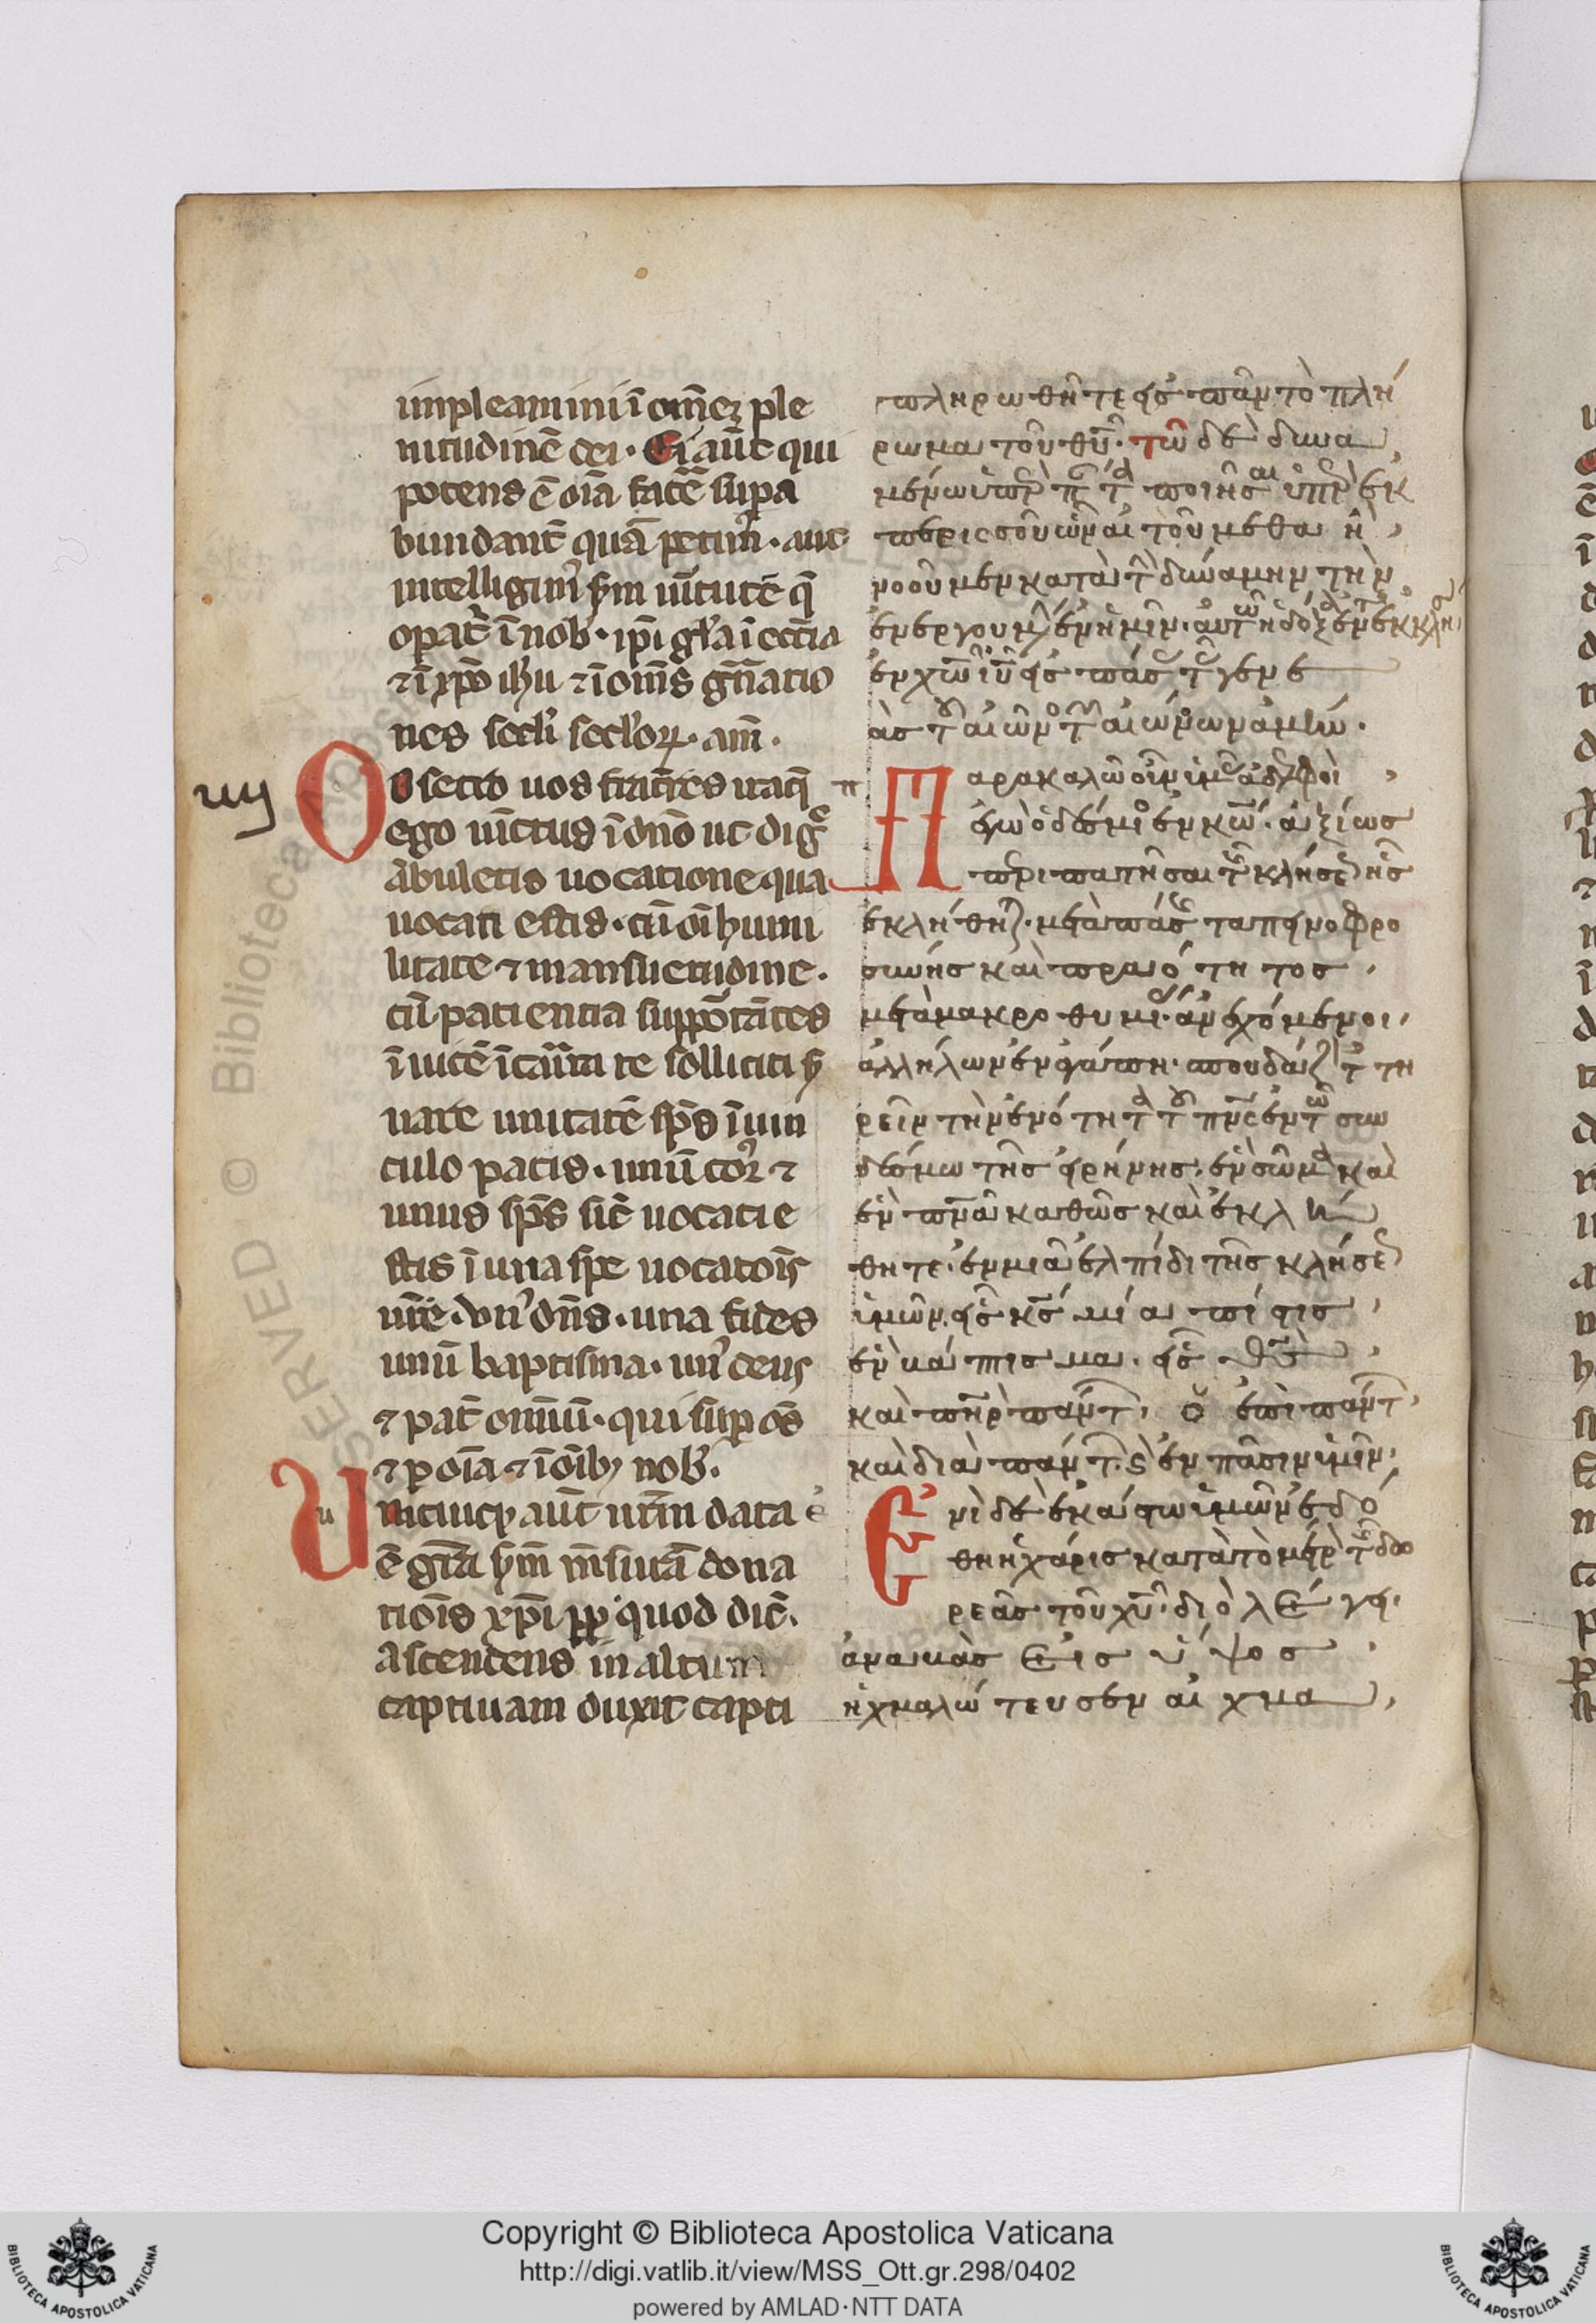 impleamini ī om̄eꝫ ple
nitudinē dei · Ei aūt qui
potens ē oīa facē supa
bundant̄ quā petim̄ · aut
intelligim̄ s̄m uīrtutē q̄
opat̄ ī nob̄ · ip̄i gl̄a ī ecc̄ia
⁊ ī xp̄o ih̄u ⁊ ī om̄s gn̄atio
nes secl̄i secl̄oꝝ · am̄ ·
iiij
Obsecro uos frāres itaq̄
ego uīctus ī dn̄o ut diḡ
ābuletis uocatione qua
uocati estis · cū oī humi
litate ⁊ mansuetudine ·
cū patientia suppōrtātes
ī uicē ī cāritate solliciti s̄
uare unitatē sp̄s ī uin
culo pacis · unū cor̄ ⁊
unus sp̄s sic̄ uocati e
stis ī una spe uocatōis
ur̄e · un̄ dn̄s · una fides
unū baptisma · un̄ deus
⁊ pat̄ omniū · qui sup os̄
⁊ p oīa ⁊ ī oībꝫ nob̄ ·
Unicuiqꝫ aūt ur̄m data
ē gr̄a s̄m m̄surā dona
tiōis xp̄i pp̄ quod dic̄ ·
ascendens in altum
captiuam duxit capti
πληρωθῆτε εἰς πᾶν τὸ πλή
ρωμα τοῦ θῦ · τῶ δὲ δυνα
μένω ὑπὲρ πάντα ποιῆσαι ὑπὲρ ἐκ
περισσοῦ ὧν αἰτούμεθα ἢ
νοοῦμεν κατὰ τὴν δύναμην τὴν
ἐνεργουμένην ἐν ἡμῖν · αὐτῶ ἡ δόξα ἐν τῇ ἐκκλη
ἐν χῶ ιῦ εἰς πάσας τὰς γενε
ὰς τοῦ αἰῶνος τῶν αἰώνων ἀμήν ·
Παρακαλῶ οὖν ὑμᾶς ἀδελφοὶ
ἐγὼ ὁ δέσμιος ἐν κῶ · ἀξίως
περιπατῆσαι τῆς κλήσεως ἧς
ἐκλήθητε · μετὰ πάσης ταπεινοφρο
σύνης καὶ πραότητος
μετὰ μακροθυμίας · ἀνεχόμενοι
ἀλλήλων ἐν ἀγάπη · σπουδάζοντες τη
ρεῖν τὴν ἑνότητα τοῦ πν̄ς ἐν τῶ συν
δέσμω τῆς εἰρήνης · ἓν σῶμα καὶ
ἓν πνᾶ καθὼς καὶ ἐκλή
θητε · ἐν μιᾶ ἐλπίδι τῆς κλήσεως
ὑμῶν · εἷς κς̄ μία πίστις
ἓν βάπτισμα · εἷς θς̄
καὶ πηρ̄ πάντων ὁ ἐπὶ πάντων
καὶ διὰ πάντων · ϛ ἐν πᾶσιν ὑμῖν ·
Ἑνὶ δὲ ἑκάστω ὑμῶν ἐδό
θη ἡ χάρις κατὰ τὸ μέτρον τῆς δω
ρεᾶς τοῦ χῦ · διὸ λέγει ·
ἀναβὰς εἰς ὕψος
ἠχμαλώτευσεν αἰχμα
Copyright © Biblioteca Apostolica Vaticana
http://digi.vatlib.it/view/MSS_Ott.gr.298/0402
powered by AMLAD·NTT DATA